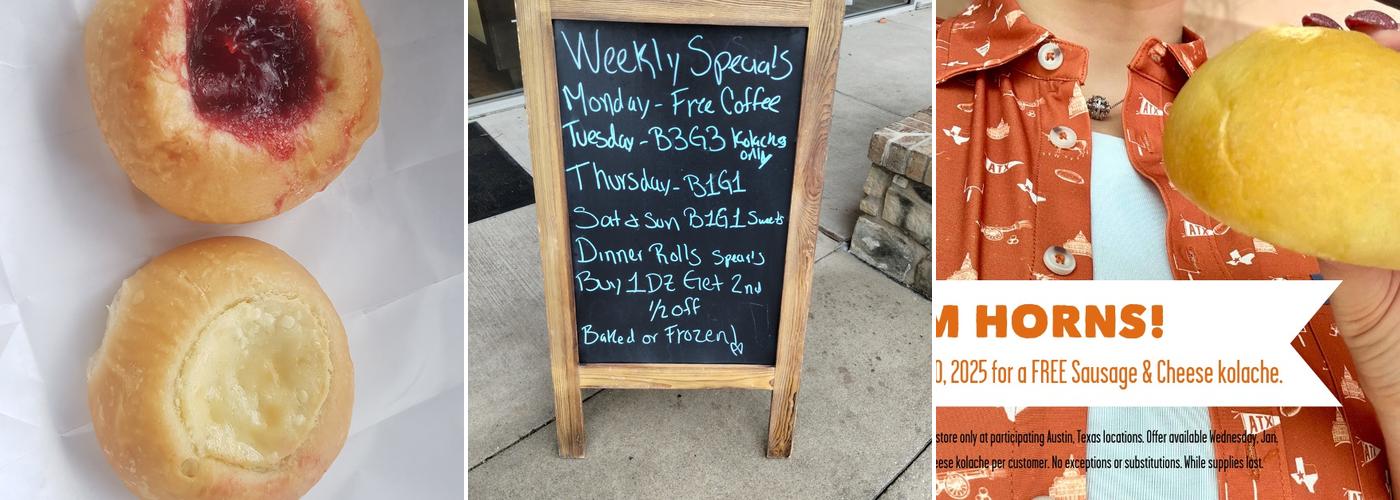 Weekly Specials
Monday - Free Coffee
Tuesday - B3G3 Kolaches
only
Thursday - B1G1
Sat & Sun B1G1 Sweets
Dinner Rolls Special's
Buy 1DZ Get 2nd
1/2 off
Baked or Frozen!
M HORNS!
0, 2025 for a FREE Sausage & Cheese kolache.
store only at participating Austin, Texas locations. Offer available Wednesday, Jan.
eese kolache per customer. No exceptions or substitutions. While supplies last.
ATX
ATX
ATX
ATX